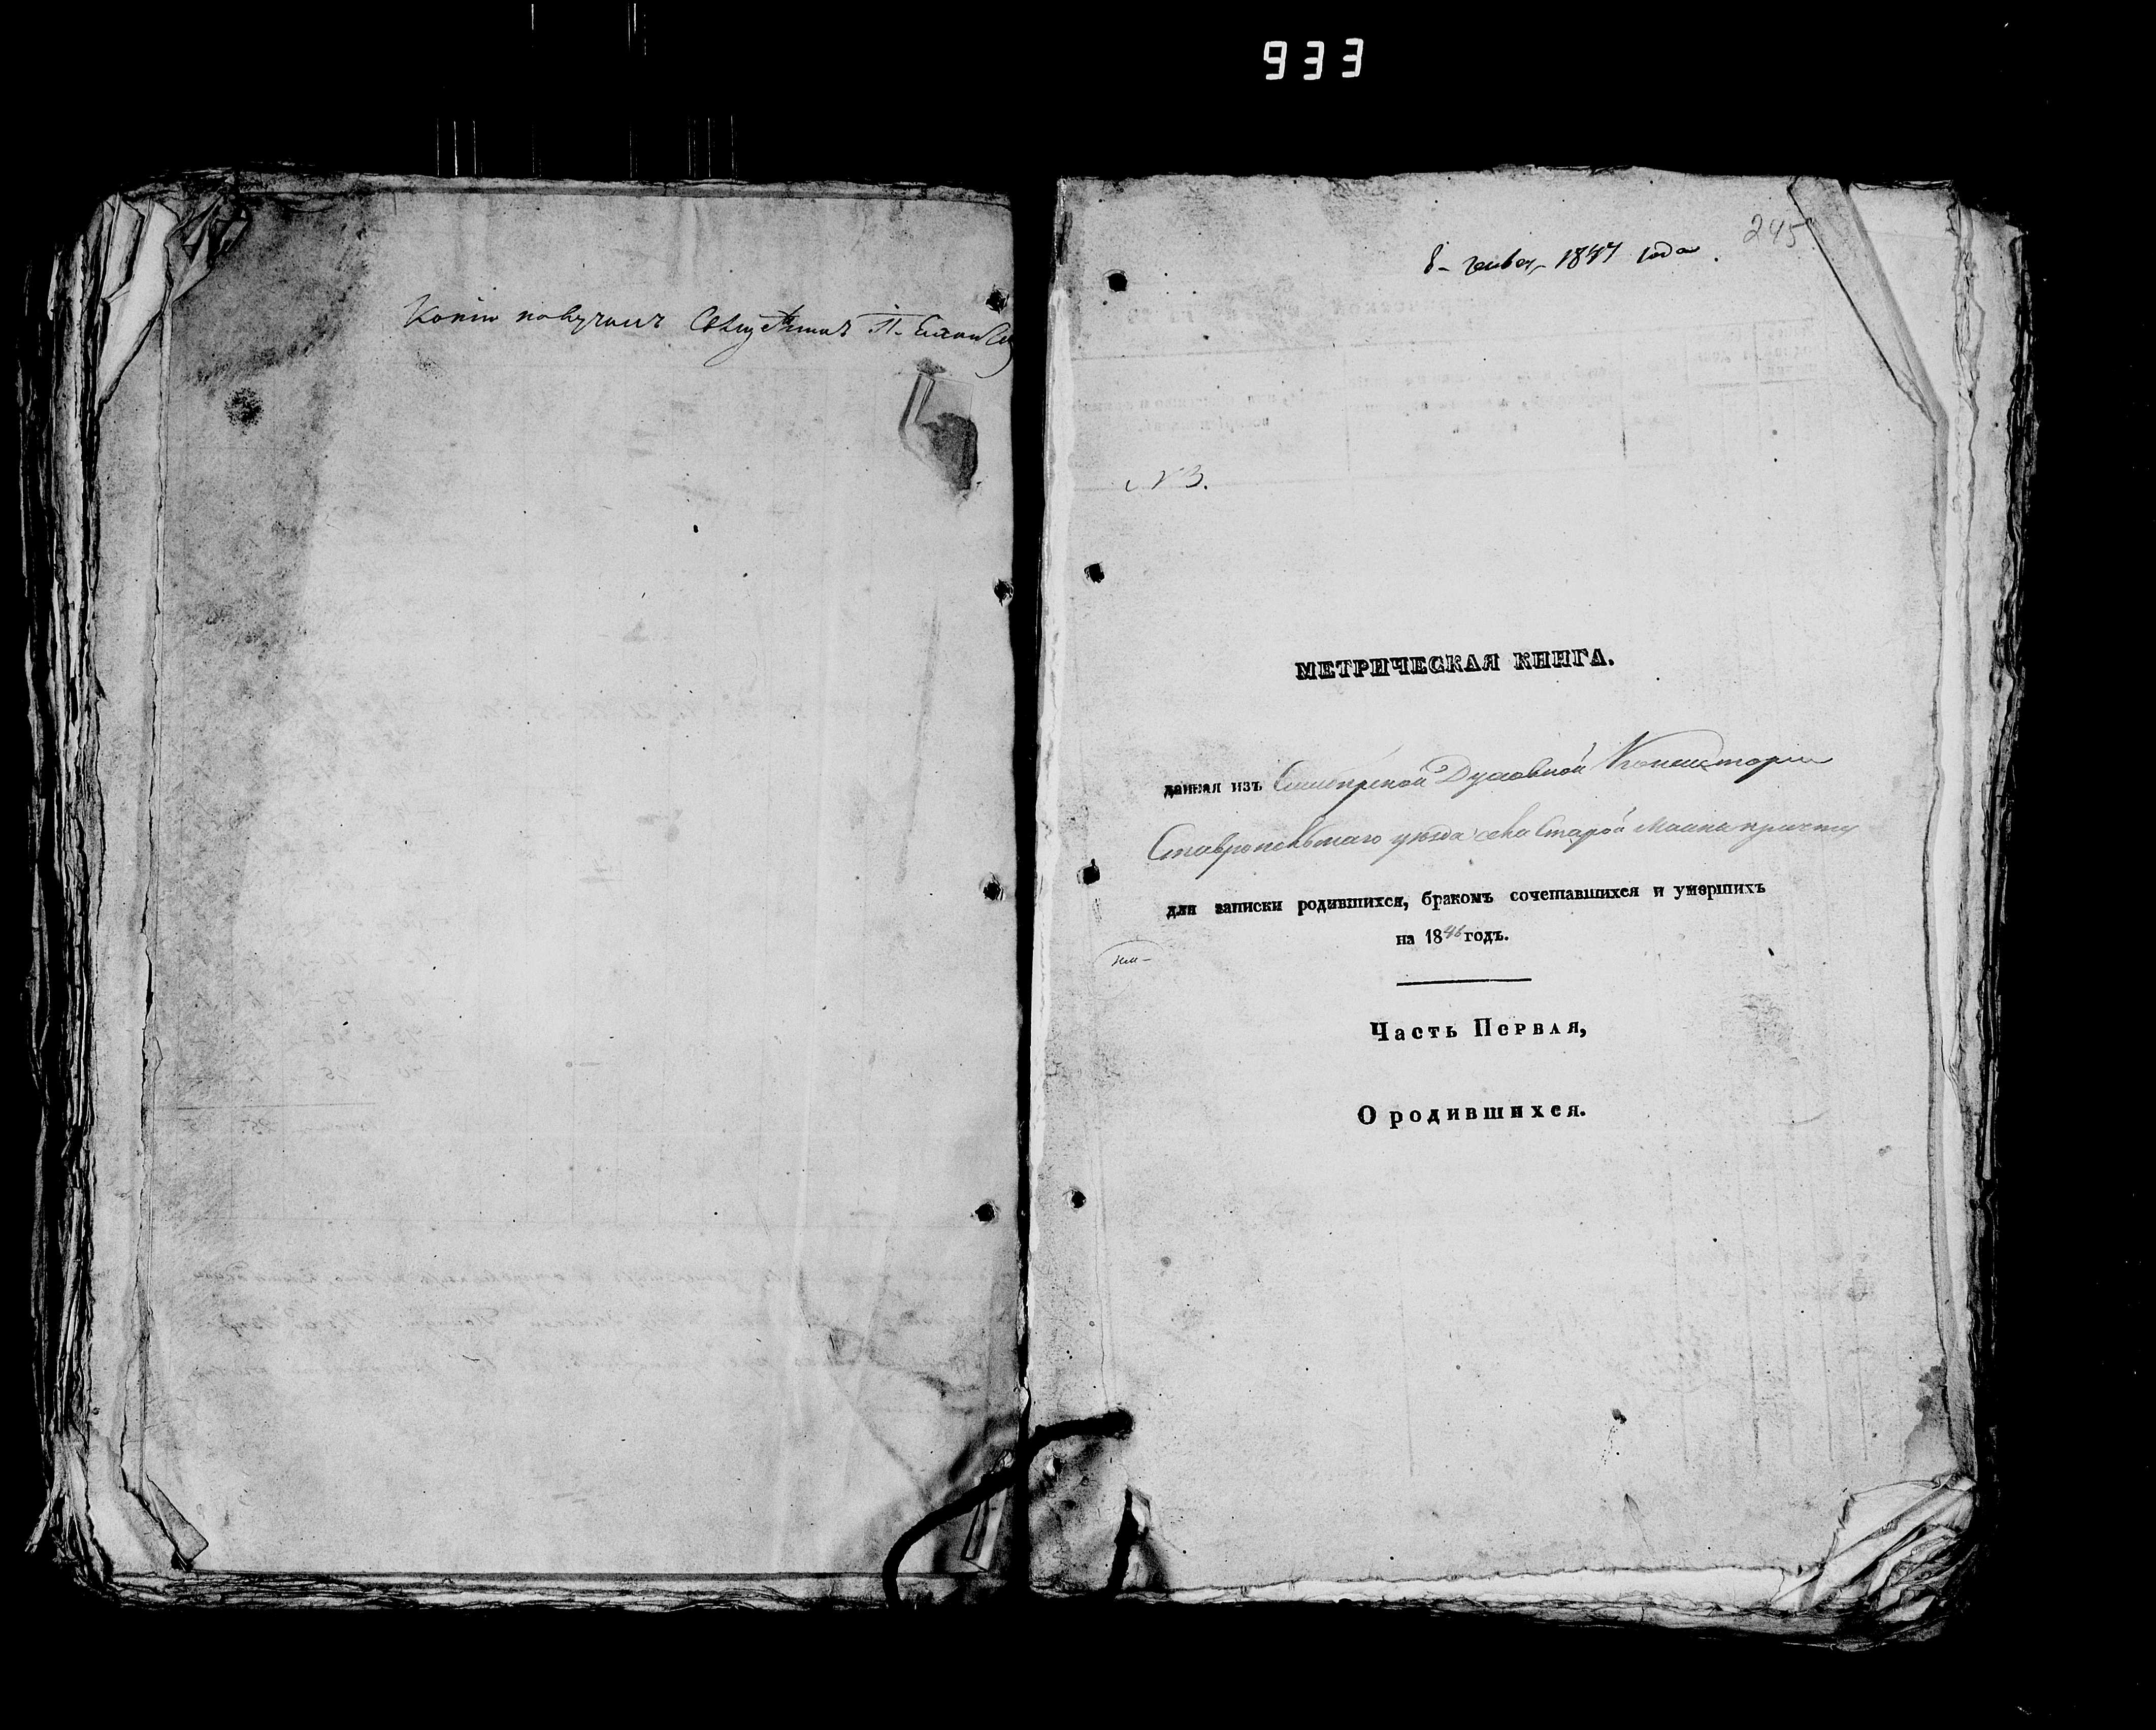 933
Копію получилъ Священникъ П.
245
8 - генвар, 1847 года.
№ 3.
МЕТРИЧЕСКАЯ КНИГА.
данная изъ Симбирской Духовной Консисторіи
Ставропольскаго уѣзда села Старой Майны причту
для записки родившихся, бракомъ сочетавшихся и умершихъ
на 1846 годъ.
Часть Первая,
О родившихся.